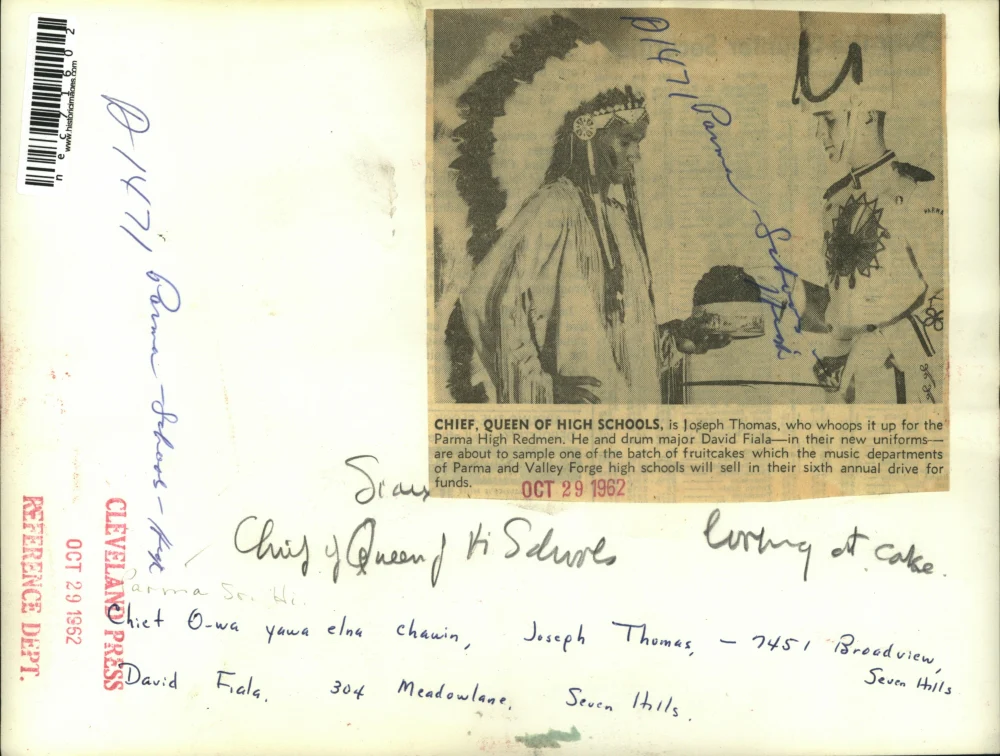 necz21602
www.historicimages.com
D1471 Parma - Schools - High
D1471 Parma - Schools High
PARMA
CHIEF, QUEEN OF HIGH SCHOOLS, is Joseph Thomas, who whoops it up for the
Parma High Redmen. He and drum major David Fiala—in their new uniforms—
are about to sample one of the batch of fruitcakes which the music departments
of Parma and Valley Forge high schools will sell in their sixth annual drive for
funds.
OCT 29 1962
Sioux
Chief of Queen of Hi Schools looking at cake.
Parma Sr. Hi.
Chief O-wa yawa elna chawin, Joseph Thomas, - 7451 Broadview,
Seven Hills
David Fiala, 304 Meadowlane, Seven Hills.
CLEVELAND PRESS
OCT 29 1962
REFERENCE DEPT.